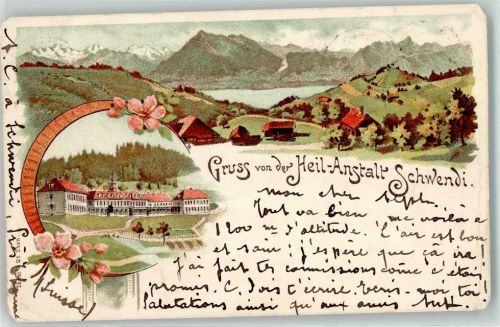 Gruss von der Heil-Anstalt Schwendi.
mon cher
Tout va bien me voilà à
1200 m d'altitude. L'air est bon
et sain; j'espère que çà ira!
J'ai fait tes commissions come c'était
promis. C. dois t'écrire. Ecris-moi toi!
Salutations ainsi qu'aux amis
A. C. à Schwendi, près
(Suisse)